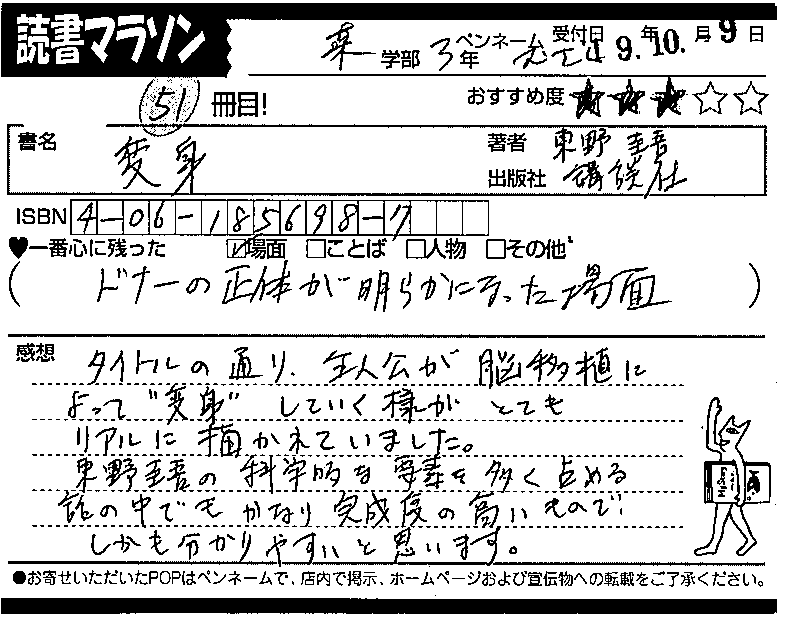 読書マラソン
薬学部 3年 ペンネーム 受付日 9年10月9日
51冊目! おすすめ度 ★★★☆☆
書名 変身 著者 東野圭吾
出版社 講談社
ISBN 4-06-185698-7
♥一番心に残った ☑場面 □ことば □人物 □その他
(ドナーの正体が明らかになった場面)
感想 タイトルの通り、主人公が脳移植に
よって"変身"していく様がとても
リアルに描かれていました。
東野圭吾の科学的な要素を多く占める
話の中でもかなり完成度の高いもので
しかも分かりやすいと思います。
●お寄せいただいたPOPはペンネームで、店内で掲示、ホームページおよび宣伝物への転載をご了承ください。